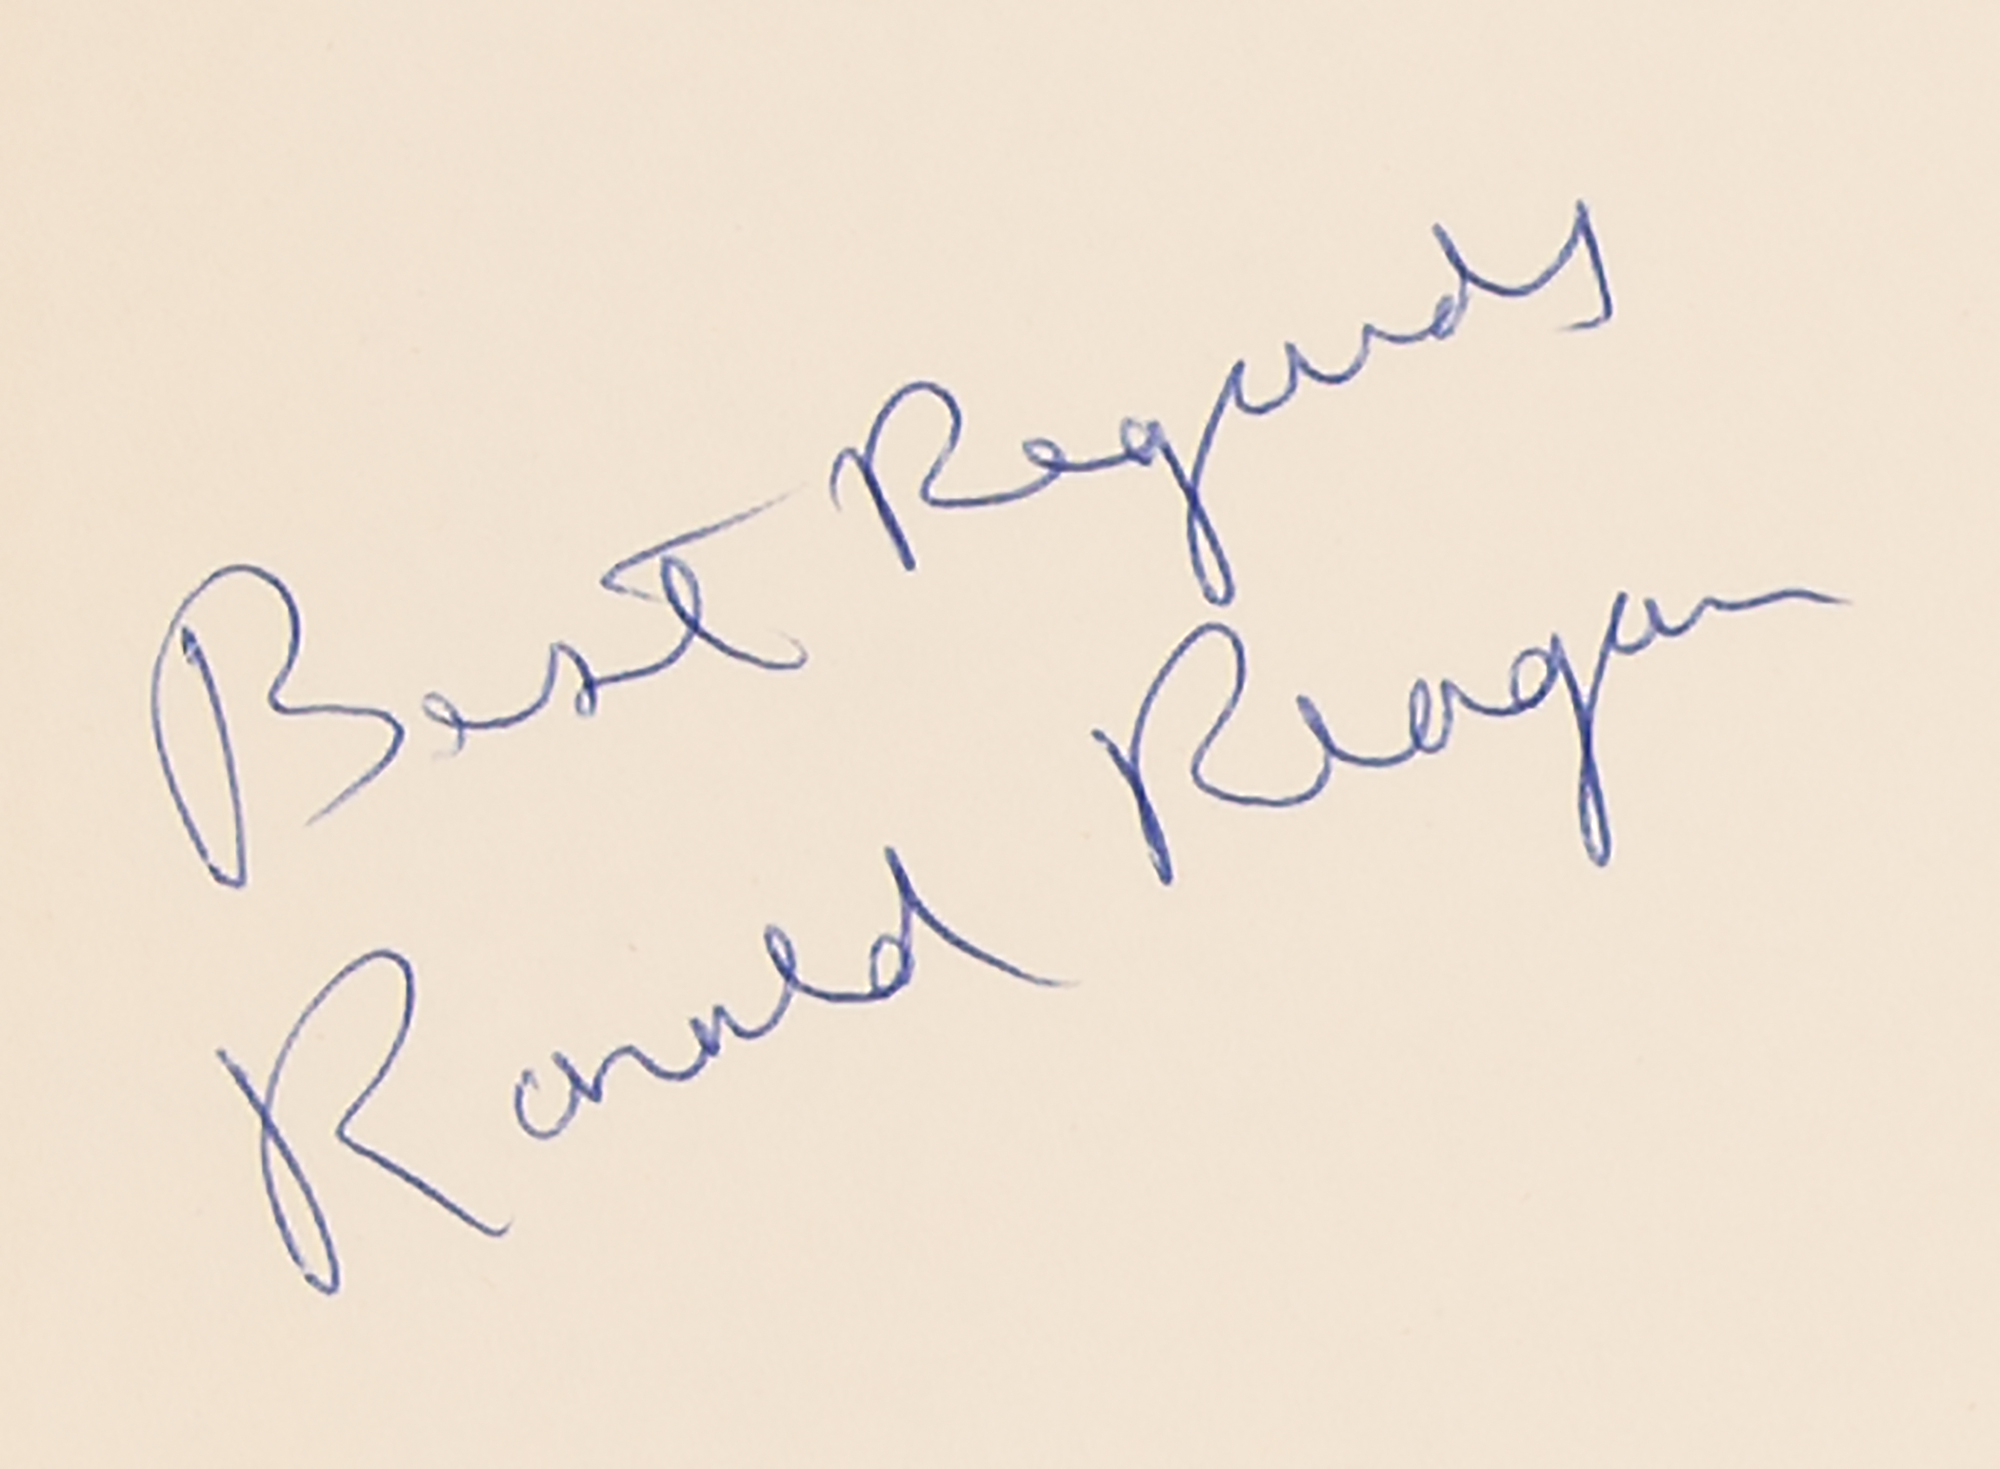 Best Regards
Ronald Reagan